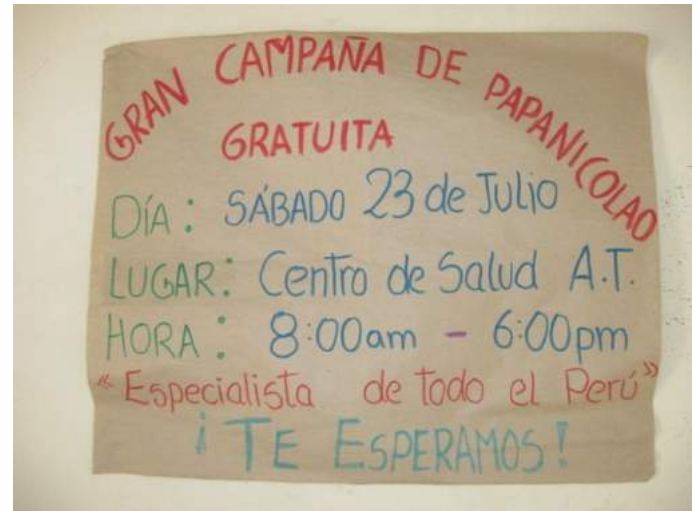 GRAN CAMPAÑA DE PAPANICOLAO
GRATUITA
DÍA: SÁBADO 23 de Julio
LUGAR: Centro de Salud A.T.
HORA: 8:00am - 6:00pm
"Especialista de todo el Perú"
¡TE ESPERAMOS!